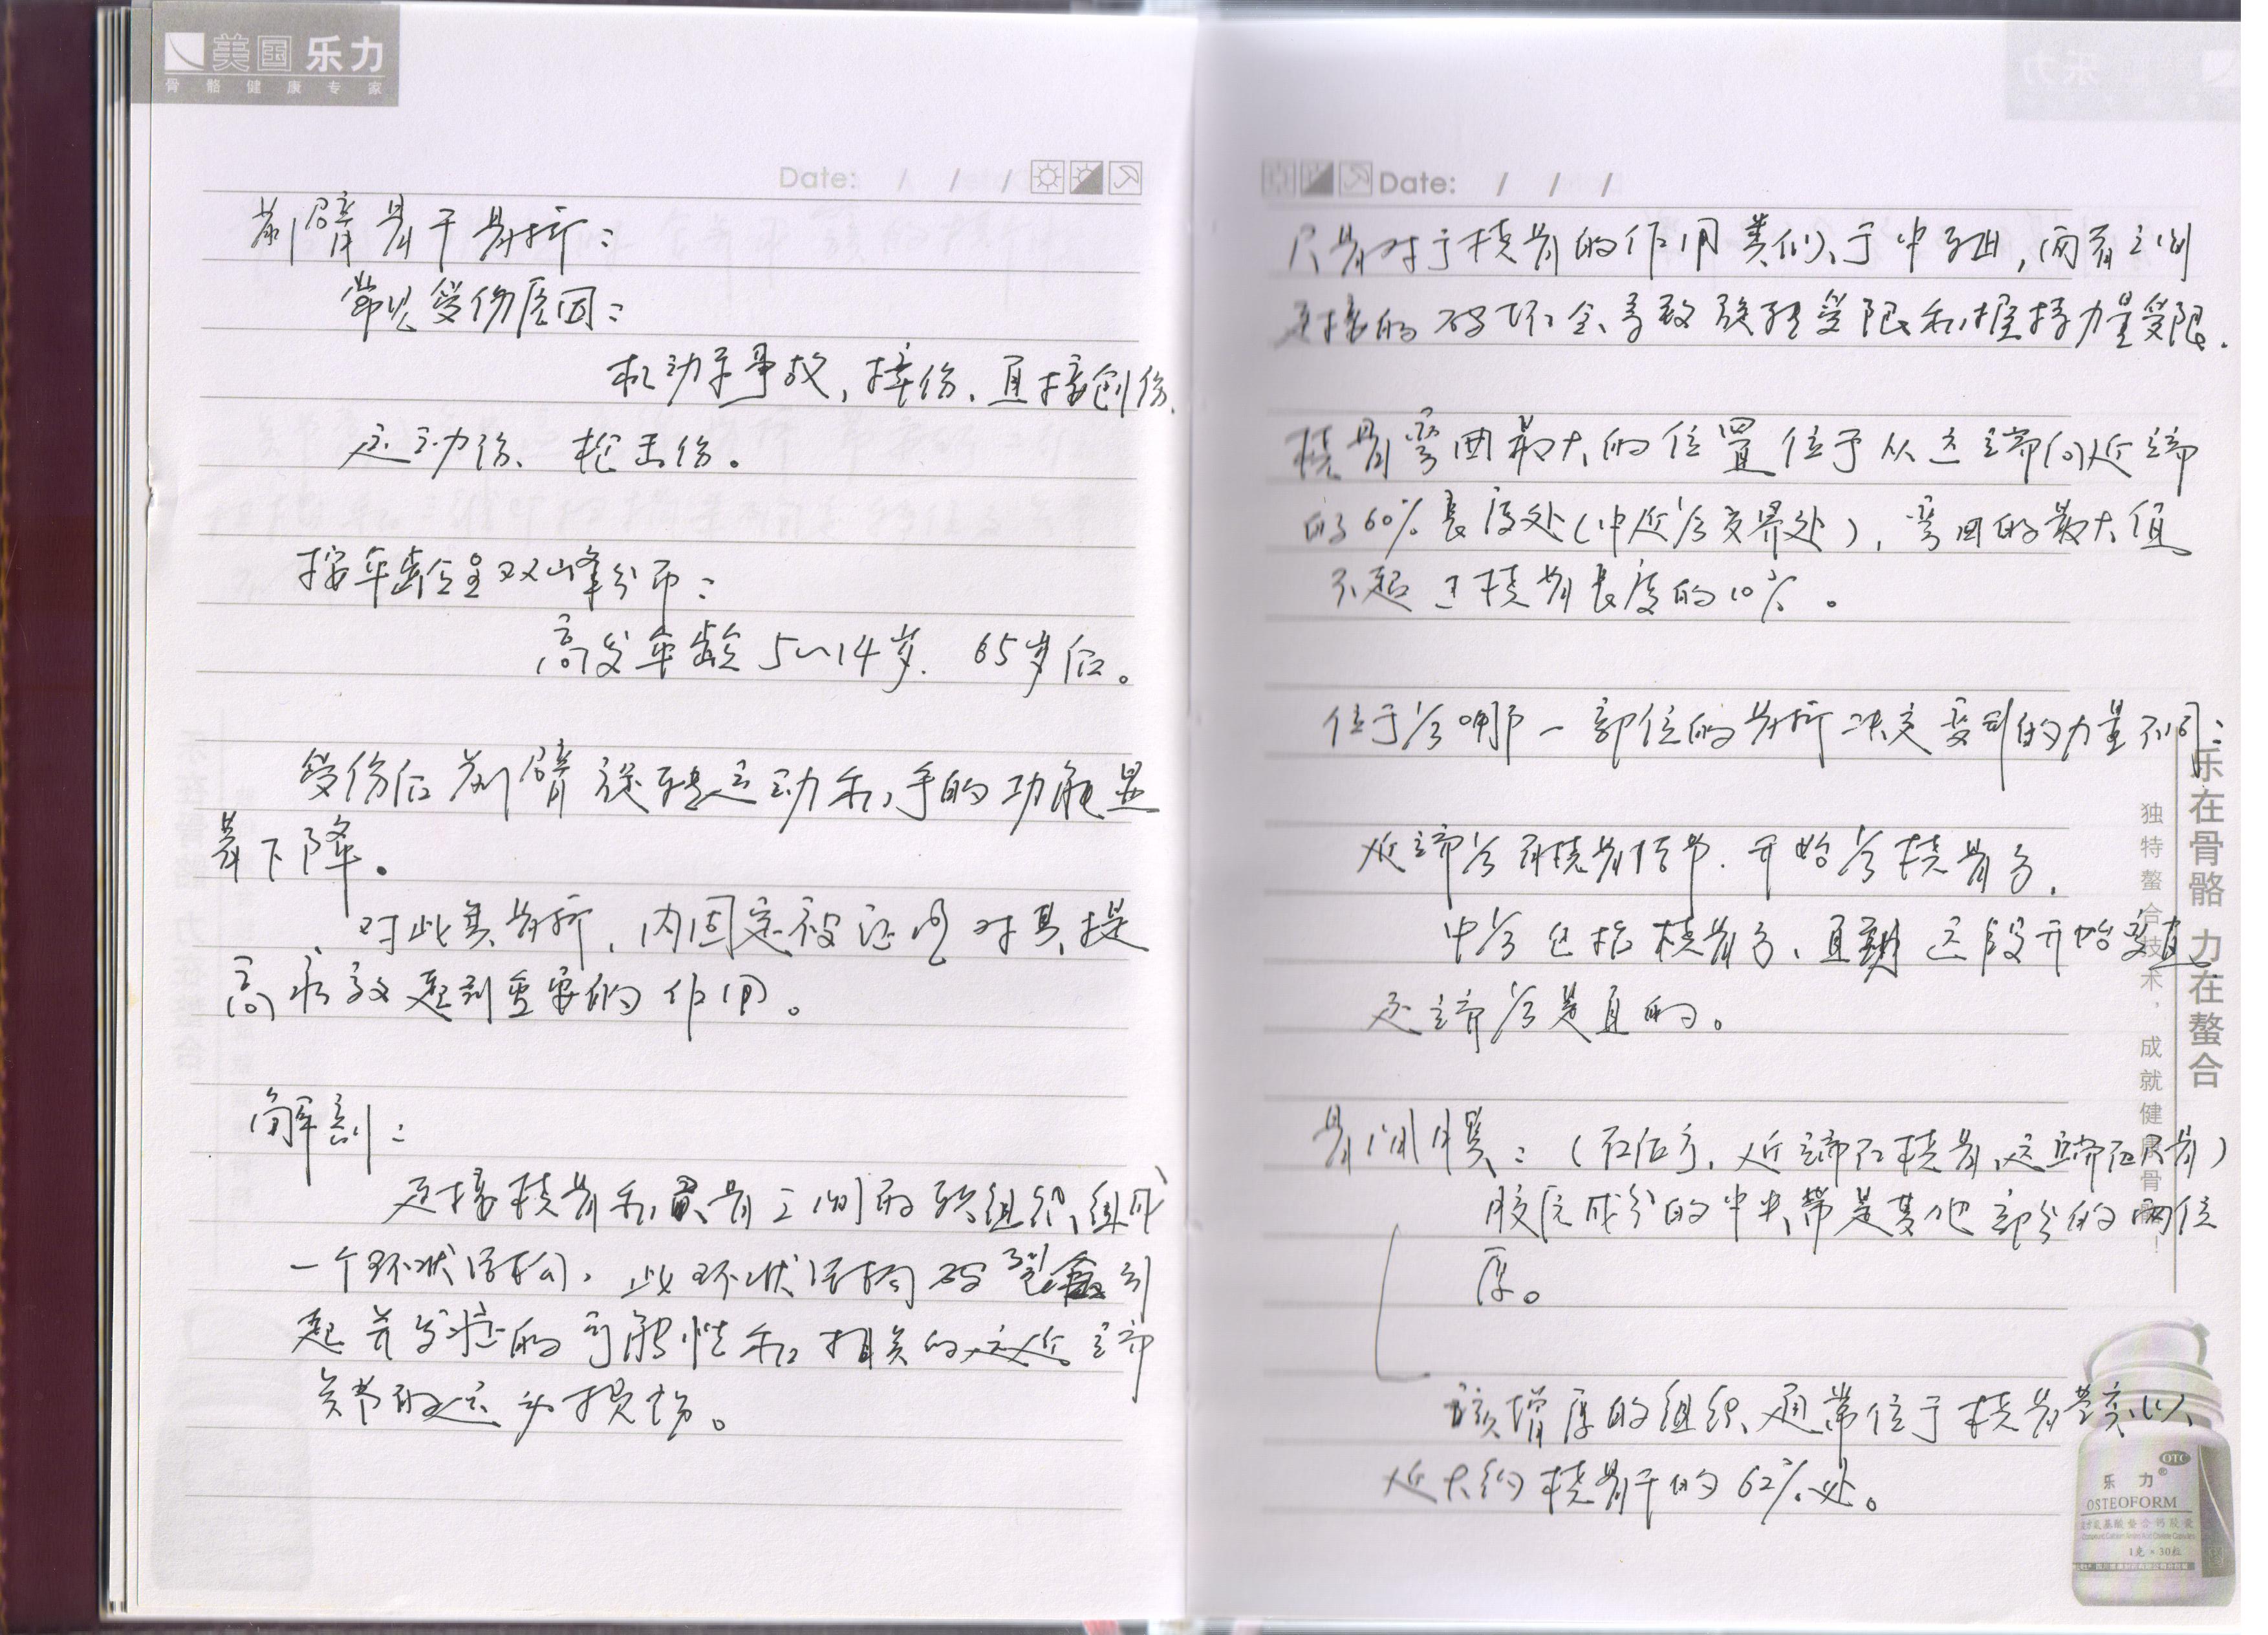 美国乐力
骨骼健康专家
Date: / / /
前臂骨干骨折：
常见受伤原因：
机动车事故，摔伤、直接创伤、
运动伤、枪击伤。
按年龄呈双峰分布：
高发年龄 5～14岁、65岁后。
受伤后前臂旋转运动和手的功能显
著下降。
对此类骨折，内固定被证明对其提
高疗效起到重要的作用。
解剖：
连接桡骨和尺骨之间的软组织组成
一个环状结构，此环状结构破裂会引
起并发症的可能性和相关的远近端
关节的运动损伤。
Date: / / /
尺骨对于桡骨的作用类似于中轴，两者之间
连接的破坏会导致旋转受限和握持力量受限.
桡骨弯曲最大的位置位于从远端向近端
的60%长度处(中近1/3交界处)，弯曲的最大值
不超过桡骨长度的10%。
位于1/3哪一部位的骨折决定受到的力量不同：
近端1/3有桡骨结节、开始1/3桡骨弓.
中1/3包括桡骨弓、直到远段开始变直.
远端1/3是直的。
骨间膜：(右后方，近端在桡骨，远端在尺骨)
胶原成分的中央带是其他部分的两倍
厚。
该增厚的组织通常位于桡骨茎突以
近大约桡骨干的62%处。
乐在骨骼 力在螯合
独特螯合技术，成就健康骨骼！
OTC
乐力®
OSTEOFORM
复方氨基酸螯合钙胶囊
1克×30粒